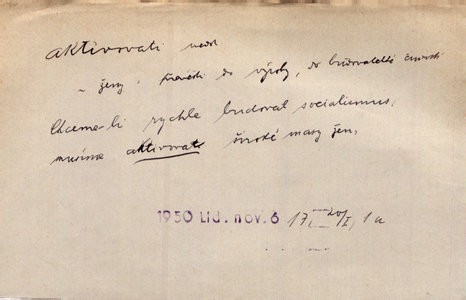 aktivovati ned.
~ ženy, přivésti do výroby, do budovatelské činnosti
Chceme-li rychle budovat socialismus,
musíme aktivovat široké masy žen,
1950 Lid. nov. 6 17, 20/I, 1a